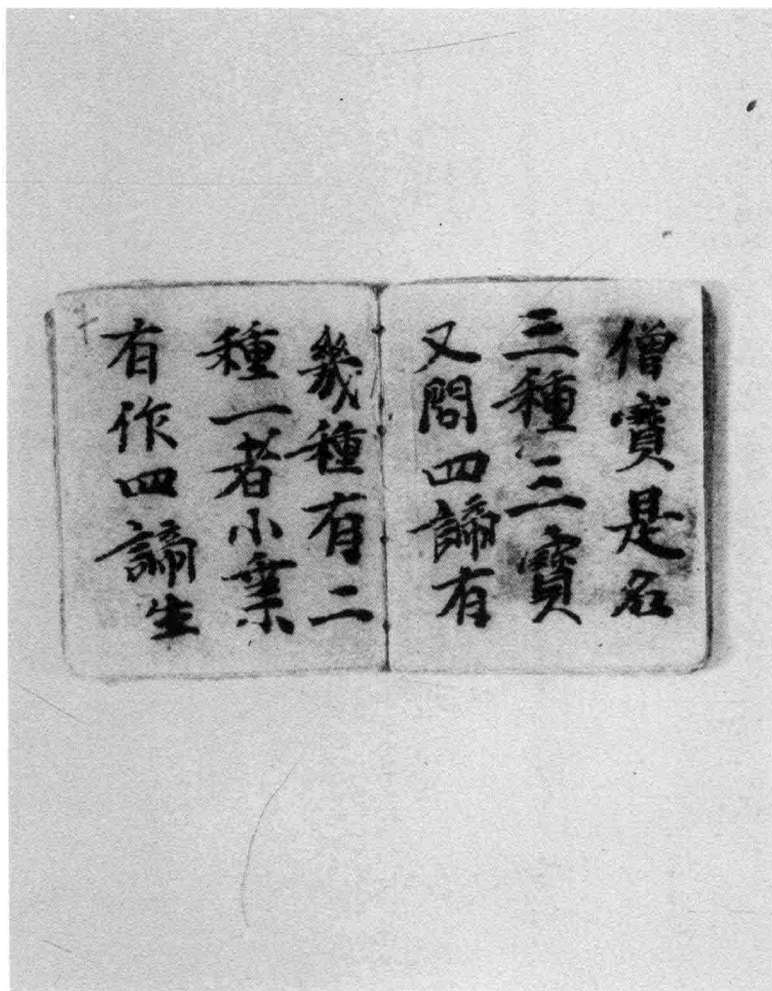 僧寶是名
三種三寶
又問四諦有
幾種有二
種一者小乗
有作四諦生
十